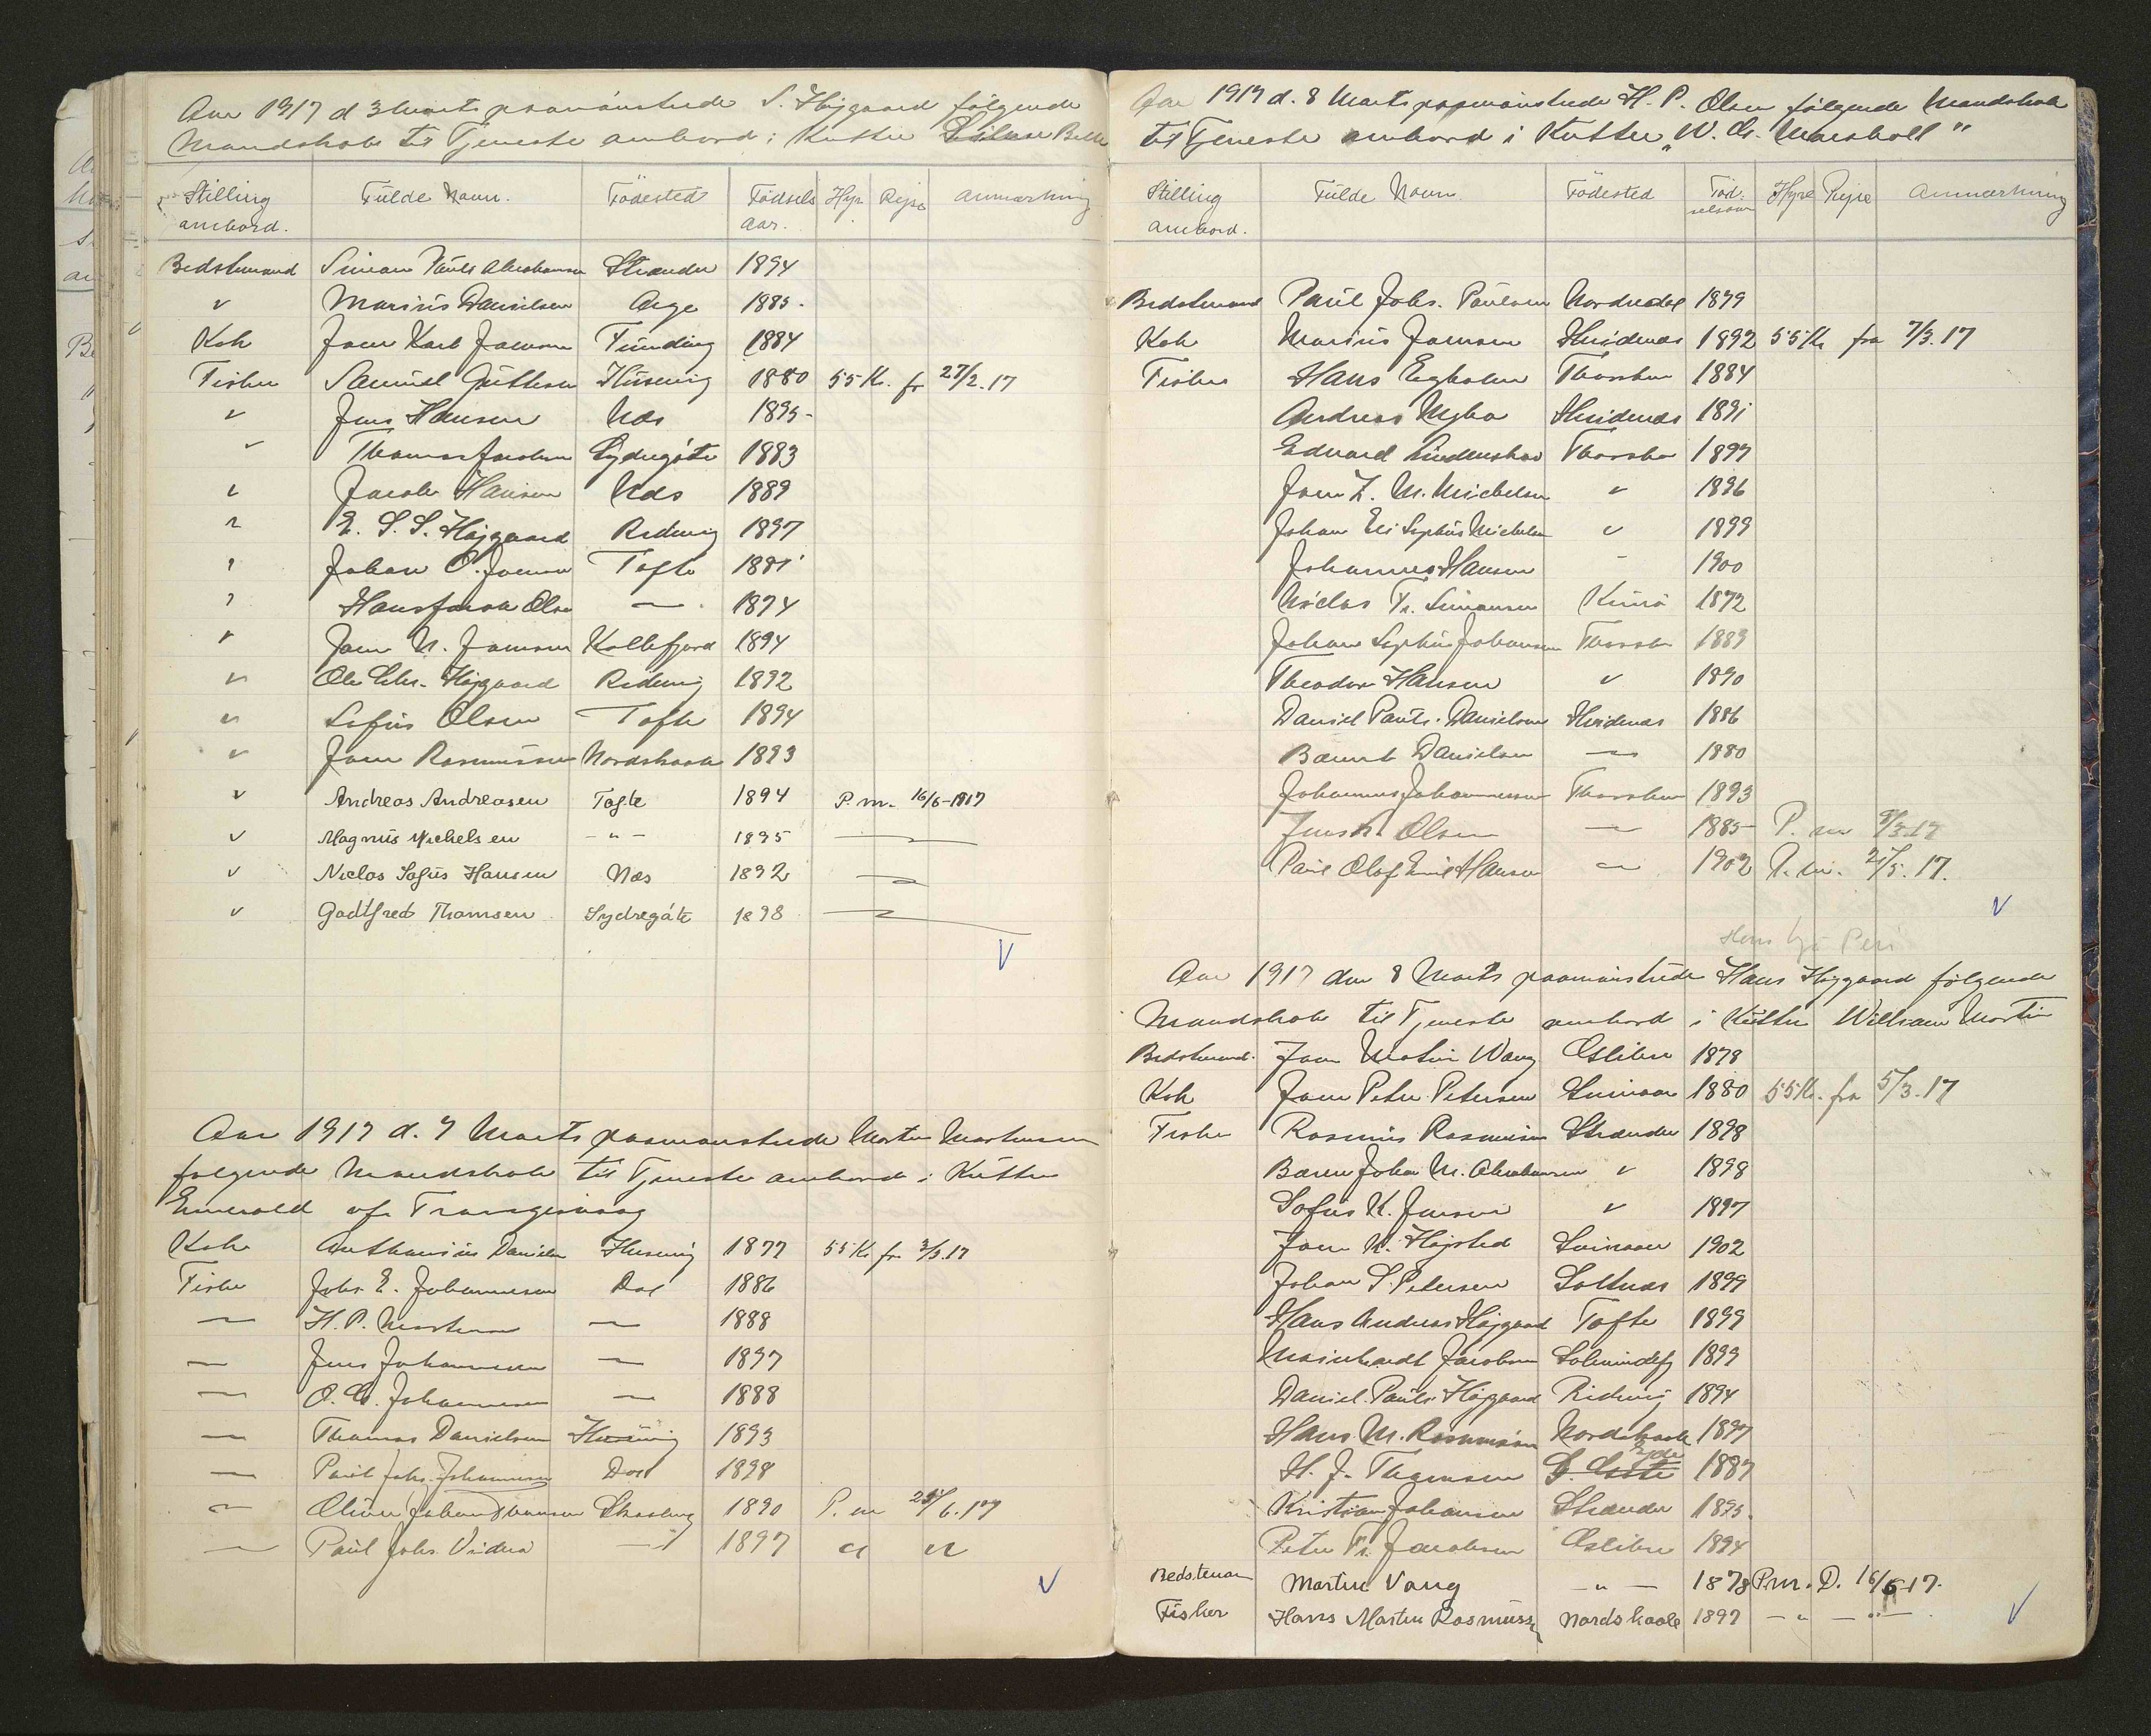 Aar 1917 d 3 Marts paamønstrede S. Højgaard følgende
Mandskab til Tjeneste ambord i Kutter Bella
Stilling ambord. Fulde Navn. Fødested Fødsels aar. Hyre Rejse Anmærkning
Bedstemand Simon Pauli Abrahamsen Strænder 1894
" Marius Danielsen Arge 1885.
Kok Joen Karl Joensen Funding 1884
Fisker Samuel Guttesen Husevig 1880 55 Kr. fr 27/2.17
" Jens Hansen Næs 1895-
" Thomas Jacobsen Sydregöte 1883
" Jacob Hansen Næs 1889
" E. S. S. Højgaard Redevig 1897
" Johan C. Joensen Tofte 1881
" Hans Jacob Olsen — 1874
" Joen N. Joensen Kollefjord 1894
" Ole Chr. Højgaard Redevig 1892
" Sofus Olsen Tofte 1894
" Joen Rasmussen Nordskaale 1893
" Andreas Andreasen Tofte 1894 P.m. 16/6-1917
" Magnus Michelsen -"- 1895 —
" Niclas Sofus Hansen Næs 1892 —
" Godtfred Thomsen Sydregöte 1898 —
Aar 1917 d. 7 Marts paamønstrede Morten Mortensen
følgende Mandskab til Tjeneste ambord i Kutter
Emerald af Trangisvaag
Kok Anthonius Danielsen Husevig 1877 55 Kr fr 3/3.17
Fisker Johs. E. Johannesen Dal 1886
— H. P. Mortensen — 1888
— Jens Johannesen — 1897
— O. C. Johannesen — 1888
— Thomas Danielsen Husevig 1893
— Paul Johs. Johannesen Dal 1898
— Oliver Johan Thomsen Skaalevig 1890 P. m 25/6.17
— Paul Johs. —"— 1897 " "
Aar 1917 d. 8 Marts paamønstrede H. P. Olsen følgende Mandskab
til Tjeneste ambord i Kutter "W. Cl. Marshall"
Stilling ambord. Fulde Navn Fødested Fødselsaar Hyre Rejse Anmærkning
Bedstemand Paul Johs. Poulsen Nordredal 1879
Kok Marius Joensen Hvidenæs 1892 55 Kr fra 7/3.17
Fisker Hans Egholm Thorshavn 1884
Andreas Mybo Hvidenæs 1891
Edvard Lindenskov Thorshavn 1897
Joen Z. M. Michelsen " 1896
Johan Eli Sophus Michelsen " 1899
Johannes Hansen - 1900
Niclas Fr. Simonsen Kunö 1872
Johan Sophus Johansen Thorshavn 1889
Theodor Hansen " 1890
Daniel Pauli Danielsen Hvidenæs 1886
Danielsen — 1880
Johannes Johannesen Thorshavn 1893
Jens H. Olsen — 1885 P. m 9/3.17
Paul Olaf Emil Hansen — 1902 P. m. 21/5.17.
Aar 1917 den 8 Marts paamønstrede Hans Højgaard følgende
Mandskab til Tjeneste ambord i Kutter William Martin
Bedstemand. Joen Martin Wang Eslibu 1878
Kok Joen Peter Petersen Svinaar 1880 55 Kr. fra 5/3.17
Fisker Rasmus Rasmussen Strænder 1898
Johan M. Abrahamsen " 1898
Sofus K. Jensen " 1897
Joen N. Højsted Svinaar 1902
Johan S. Petersen Saltnæs 1899
Hans Andreas Højgaard Tofte 1899
Meinhardt Jacobsen Solmundefj 1899
Daniel Pauli Højgaard Ridevig 1894
Hans M. Rasmussen Nordskaale 1897
H. J. Thomsen S. Göte Ejde 1887
Kristian Johansen Strænder 1895.
Peter Fr. Jacobsen Eslibu 1894
Bedsteman Martin Vang -"- 1878 P.m. D. 16/6-17.
Fisker Hans Martin Rasmussen Nordskaale 1897 -"- -"-